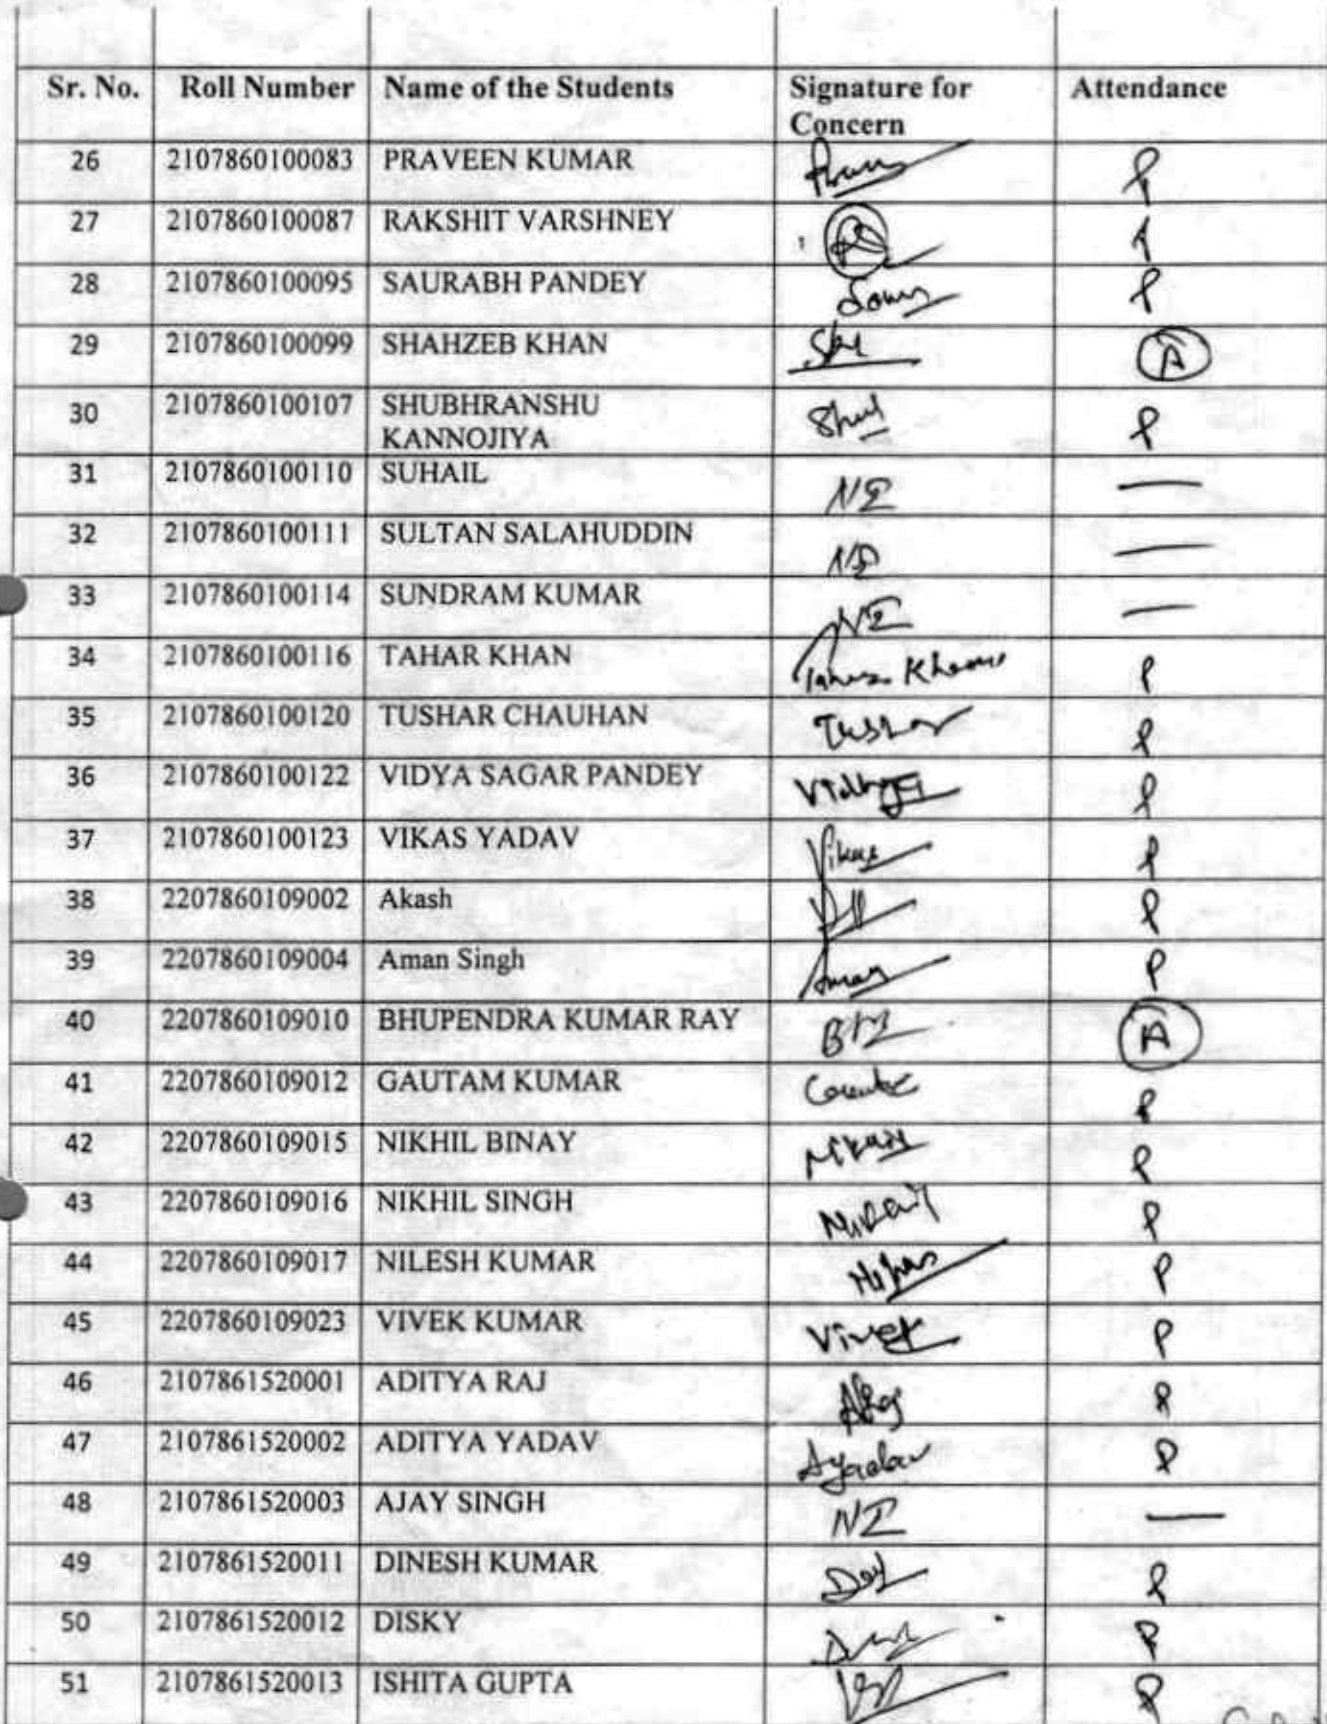 Sr. No. Roll Number Name of the Students Signature for Attendance
Concern
26 2107860100083 PRAVEEN KUMAR P
27 2107860100087 RAKSHIT VARSHNEY
28 2107860100095 SAURABH PANDEY P
29 2107860100099 SHAHZEB KHAN A
30 2107860100107 SHUBHRANSHU P
KANNOJIYA
31 2107860100110 SUHAIL —
32 2107860100111 SULTAN SALAHUDDIN —
33 2107860100114 SUNDRAM KUMAR —
34 2107860100116 TAHAR KHAN P
35 2107860100120 TUSHAR CHAUHAN Tushar P
36 2107860100122 VIDYA SAGAR PANDEY P
37 2107860100123 VIKAS YADAV Vikas P
38 2207860109002 Akash P
39 2207860109004 Aman Singh Aman P
40 2207860109010 BHUPENDRA KUMAR RAY A
41 2207860109012 GAUTAM KUMAR P
42 2207860109015 NIKHIL BINAY P
43 2207860109016 NIKHIL SINGH P
44 2207860109017 NILESH KUMAR P
45 2207860109023 VIVEK KUMAR Vivek P
46 2107861520001 ADITYA RAJ P
47 2107861520002 ADITYA YADAV Ayadav P
48 2107861520003 AJAY SINGH —
49 2107861520011 DINESH KUMAR P
50 2107861520012 DISKY P
51 2107861520013 ISHITA GUPTA P